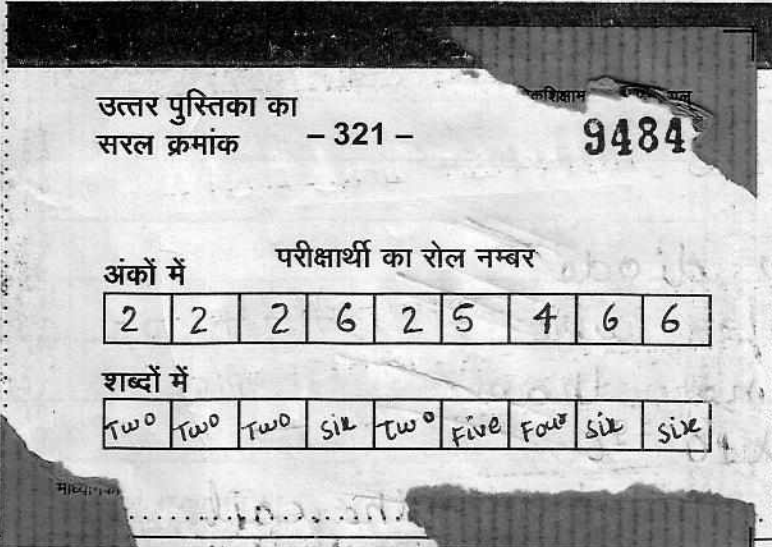 उत्तर पुस्तिका का
सरल क्रमांक – 321 – 9484
परीक्षार्थी का रोल नम्बर
अंकों में
2 2 2 6 2 5 4 6 6
शब्दों में
Two Two Two Six Two Five Four Six Six